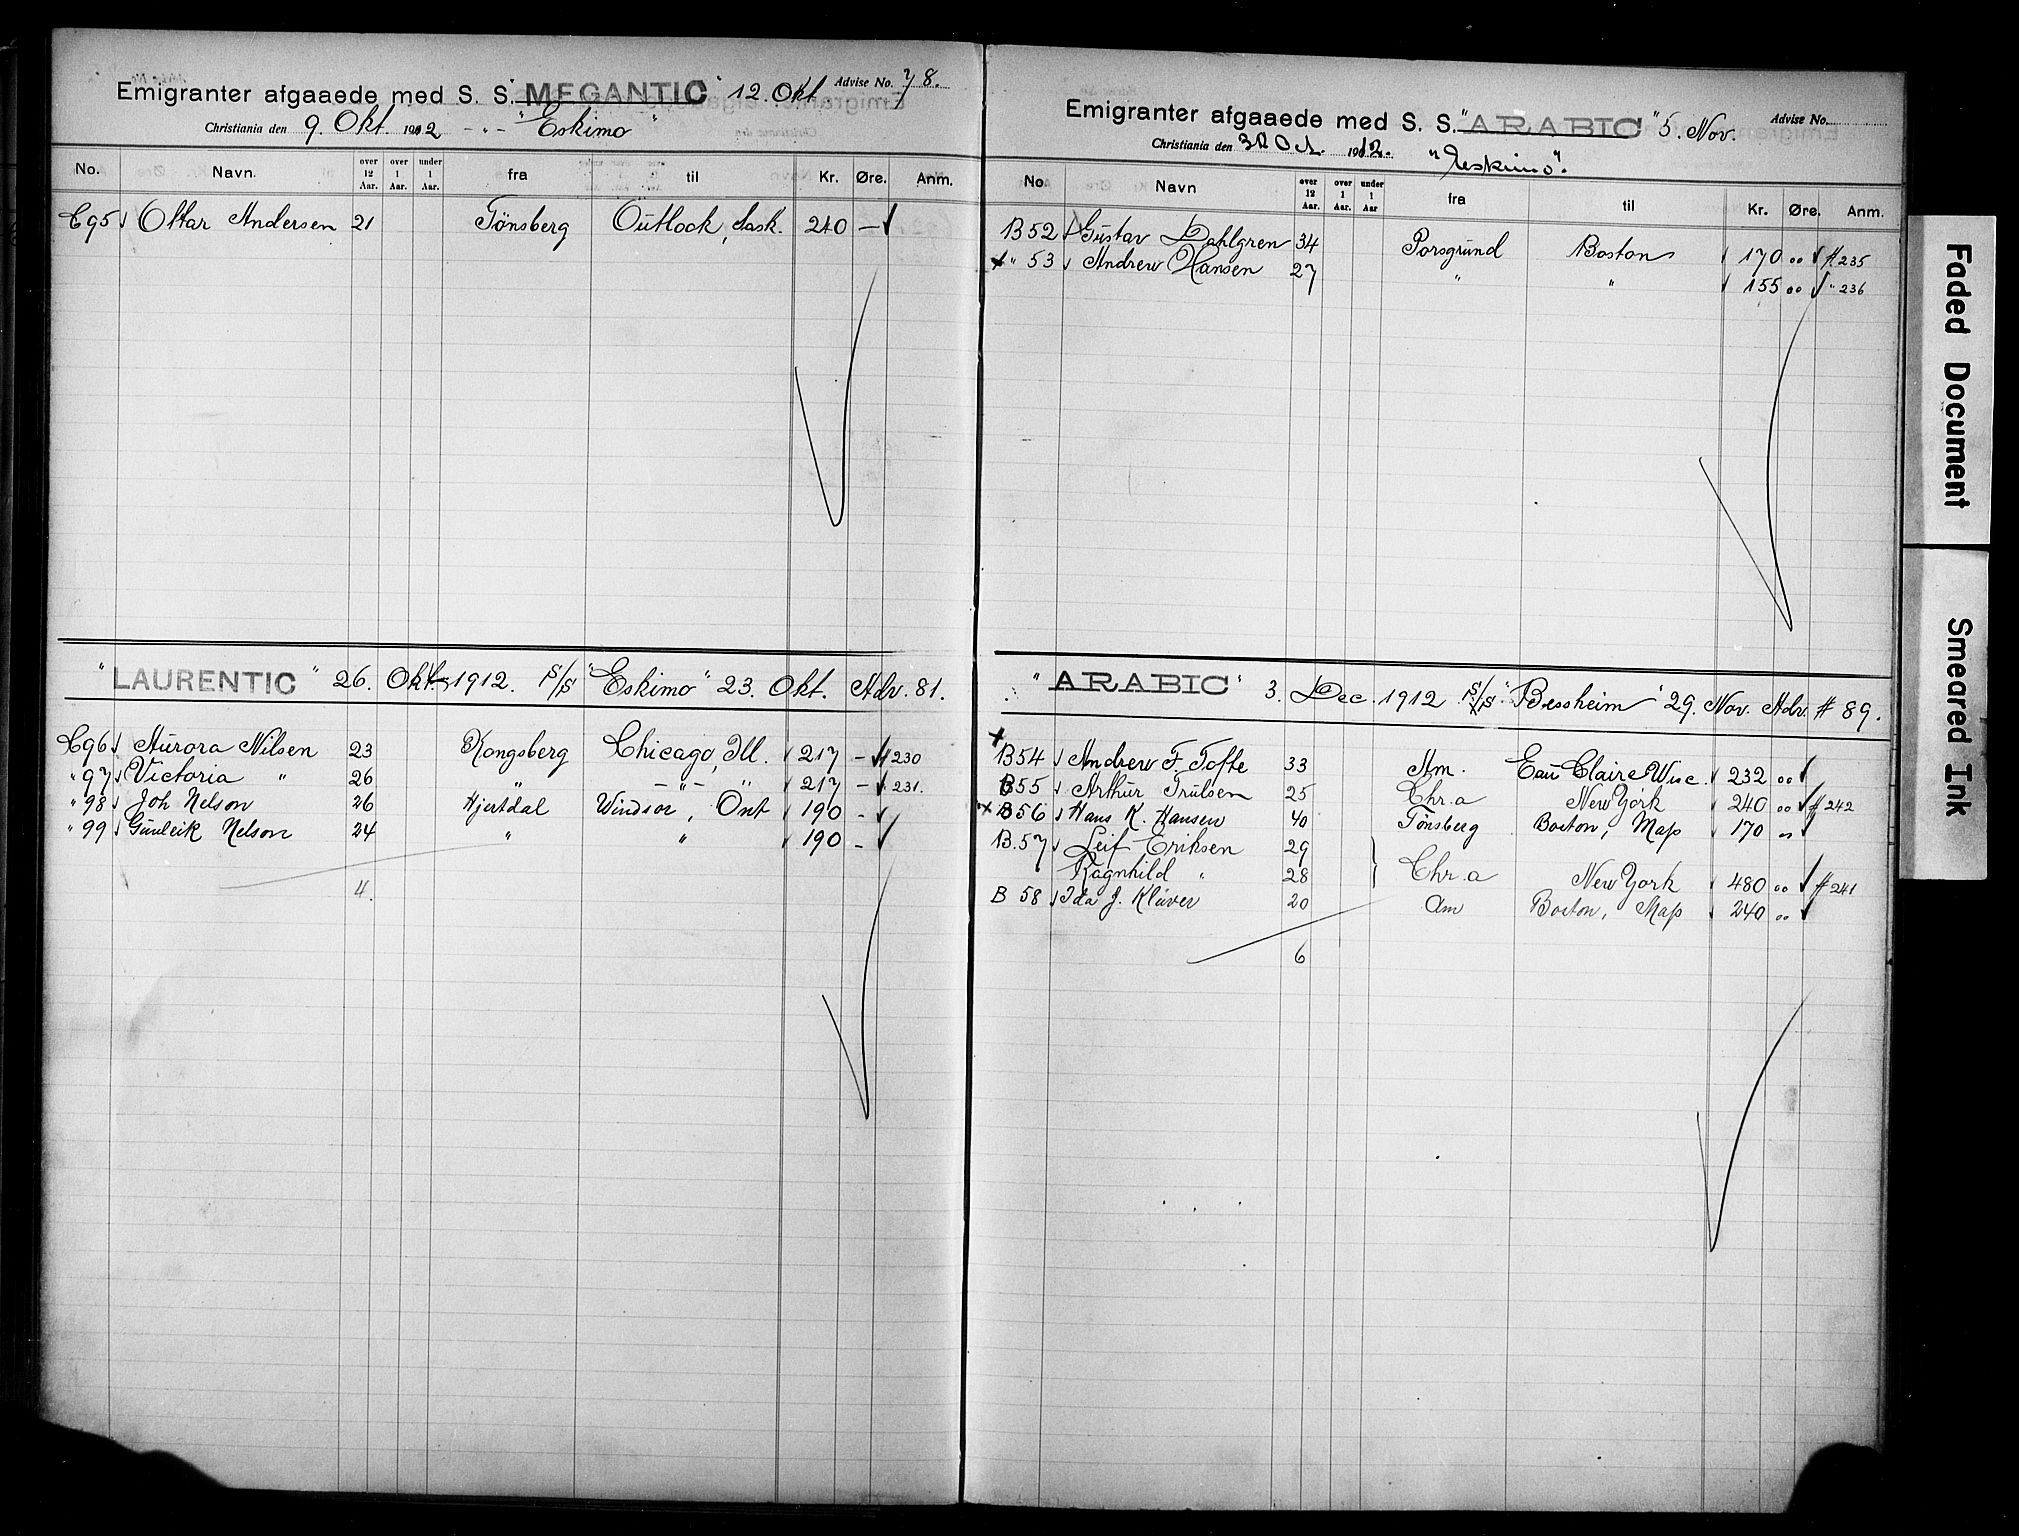 Emigranter afgaaede med S. S. "MEGANTIC" 12. Okt. Advise No. 78.
Christiania den 9. Okt. 1912 - " - "Eskimo"
No. Navn. over 12 Aar. over 1 Aar. under 1 Aar. fra til Kr. Øre. Anm.
C95 Ottar Andersen 21 Tönsberg Outlook, Sask. 240 —
"LAURENTIC" 26. Okt. 1912. S/S "Eskimo" 23. Okt. Adv. 81.
C96 Aurora Nilsen 23 Kongsberg Chicago, Ill. 217 - # 230
" 97 Victoria " 26 " - " - " 217 - " 231.
" 98 Joh Nelson 26 Hjertdal Windsor, Ont 190 -
" 99 Gunleik Nelson 24 " " 190 -
4.
Emigranter afgaaede med S. S. "ARABIC" 5. Nov. Advise No.
Christiania den Oct. 1912. "Eskimo".
No. Navn over 12 Aar. over 1 Aar. under 1 Aar fra til Kr. Øre. Anm.
B52 Gustav Dahlgren 34 Porsgrund Boston 170 00 # 235
x " 53 Andrew Hansen 27 " " 155 00 " 236
"ARABIC" 3. Dec. 1912 S/S "Bessheim" 29. Nov. Adv. # 89.
x B54 Andrew F. Tofte 33 Am. Eau Claire Wisc. 232 00
B55 Arthur Trulsen 25 Chr.a New York 240 00 # 242
x B56 Hans K. Hansen 40 Tönsberg Boston, Mass 170 "
B.57 Leif Eriksen 29
Ragnhild " 28 } Chr.a New York 480 00 # 241
B 58 Ida J. Klüver 20 Am Boston, Mass 240 00
6
Faded Document
Smeared Ink